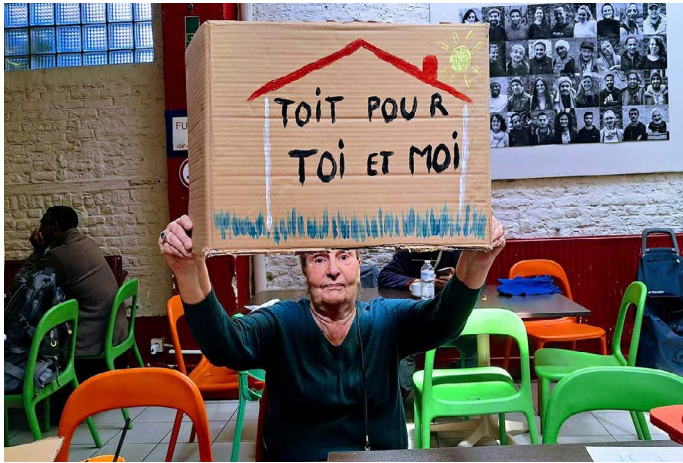 TOiT POUR
TOi ET MOi
FU